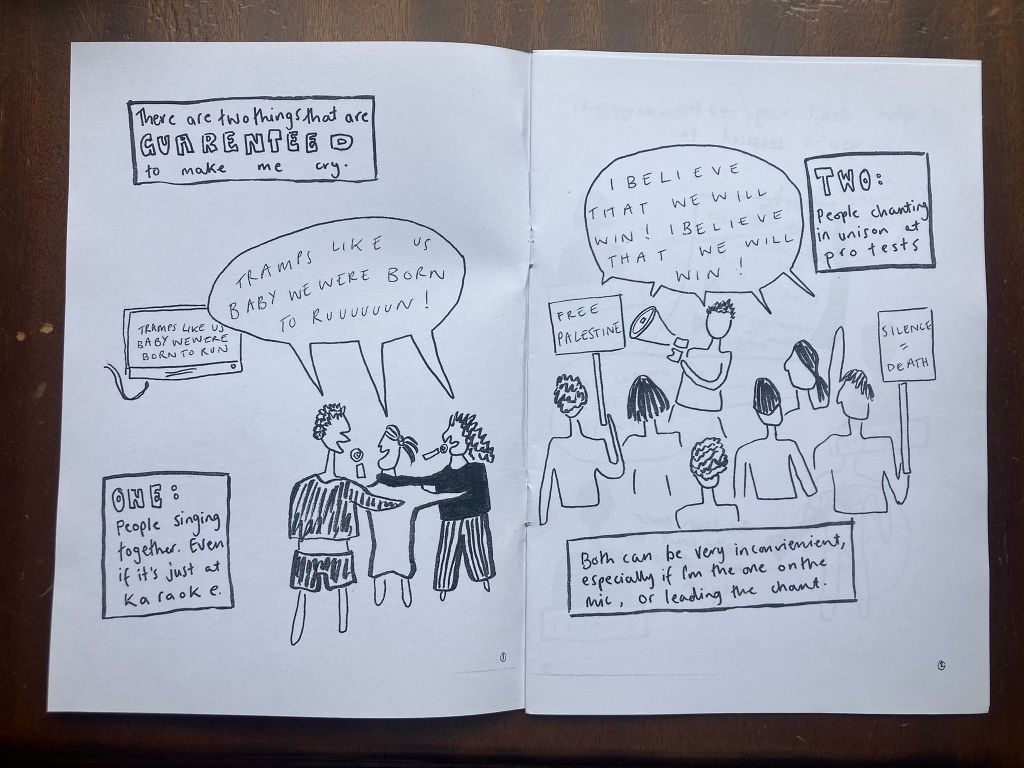 There are two things that are
GUARENTEED
to make me cry.
TRAMPS LIKE US
BABY WE WERE BORN
TO RUUUUUUN!
TRAMPS LIKE US
BABY WE WERE
BORN TO RUN
ONE:
People singing
together. Even
if it's just at
karaoke.
1
I BELIEVE
THAT WE WILL
WIN! I BELIEVE
THAT WE WILL
WIN!
TWO:
People chanting
in unison at
protests
FREE
PALESTINE
SILENCE
=
DEATH
Both can be very inconvienient,
especially if I'm the one on the
mic, or leading the chant.
2